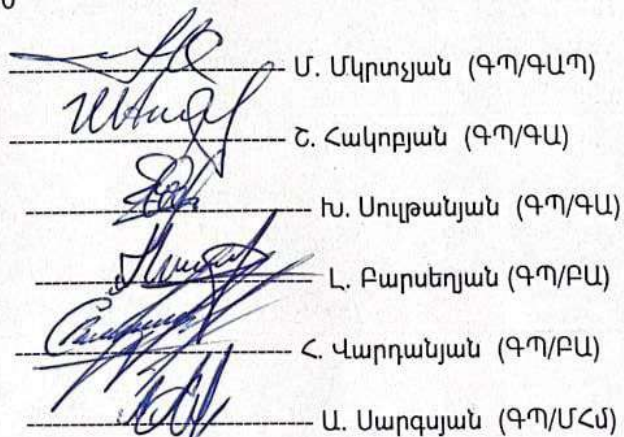 Մ. Մկրտչյան (ԳՊ/ԳԱՊ)
Շ. Հակոբյան (ԳՊ/ԳԱ)
Խ. Սուլթանյան (ԳՊ/ԳԱ)
Լ. Բարսեղյան (ԳՊ/ԲԱ)
Հ. Վարդանյան (ԳՊ/ԲԱ)
Ա. Սարգսյան (ԳՊ/ՄՀմ)